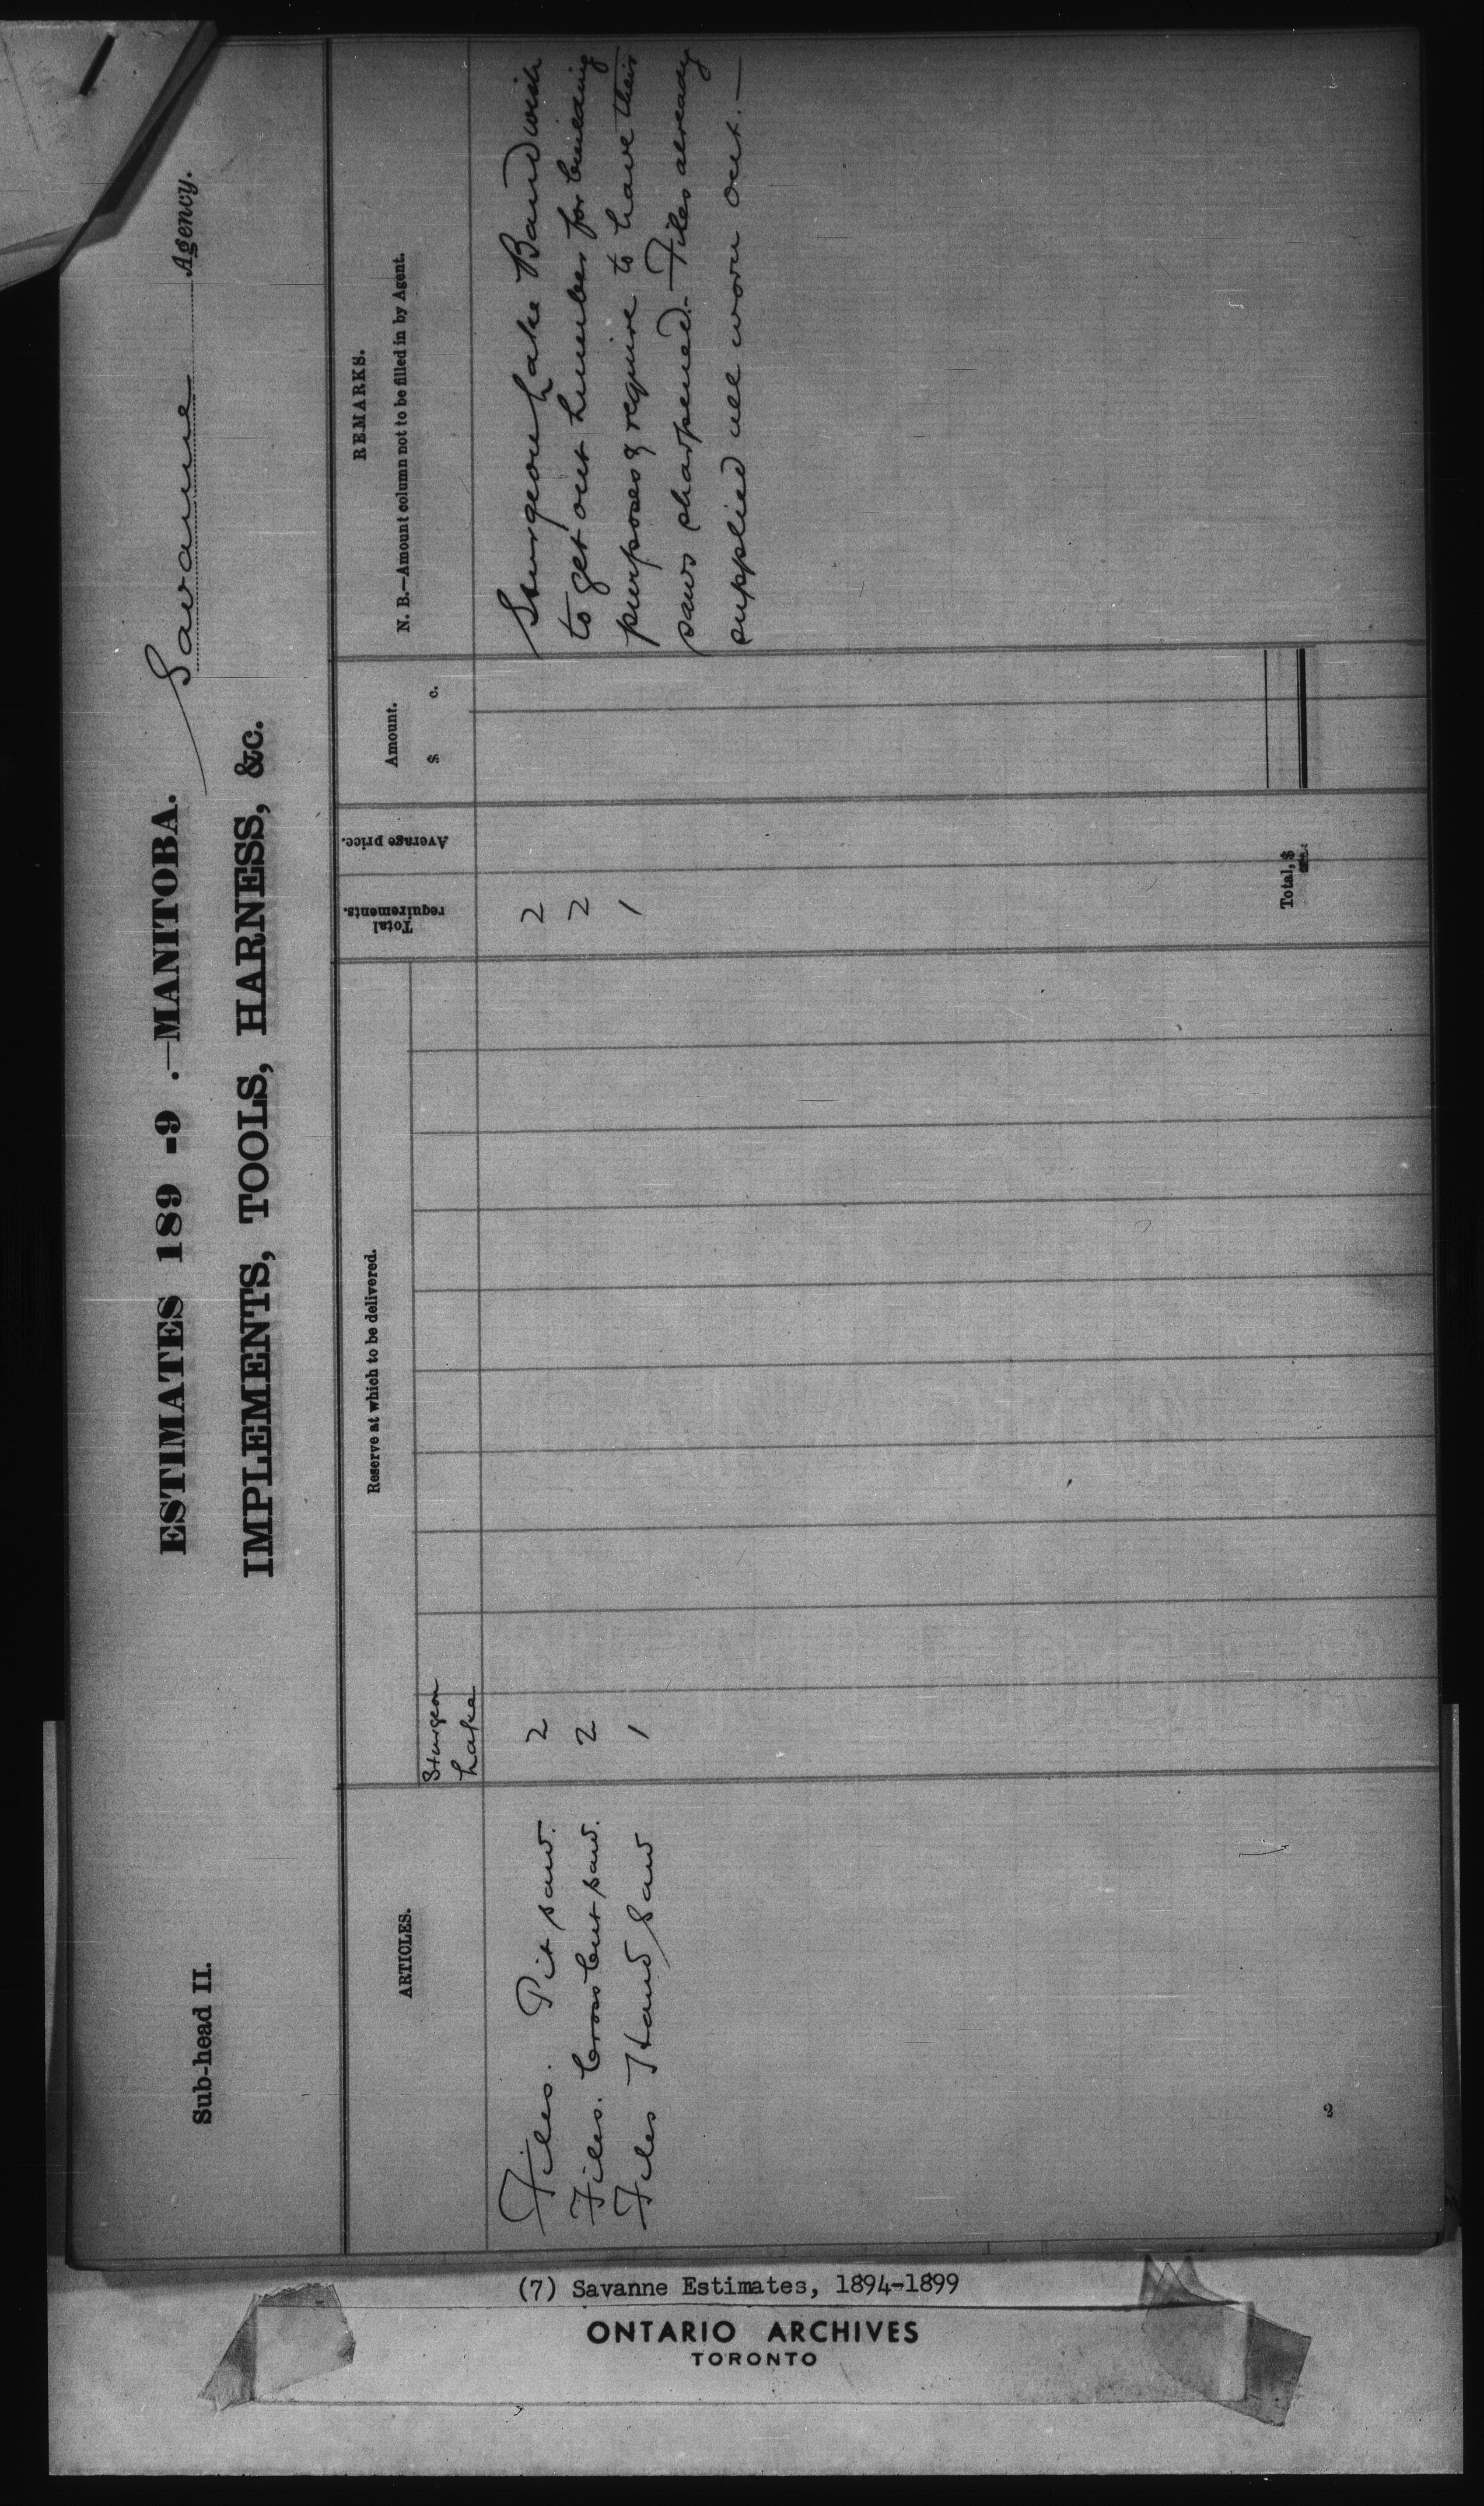 Sub-head II.
ESTIMATES 189 -9 .—MANITOBA.
Savanne Agency.
IMPLEMENTS, TOOLS, HARNESS, &c.
ARTICLES.
Reserve at which to be delivered.
Total requirements.
Average price.
Amount.
$ c.
REMARKS.
N. B.—Amount column not to be filled in by Agent.
Sturgeon
Lake
Files. Pit saw. 2 2
Files. Cross Cut saw. 2 2
Files Hand Saw 1 1
Sturgeon Lake Band wish
to get out Lumber for building
purposes & require to have their
saws sharpened.- Files already
supplied all worn out. —
Total, $
2
(7) Savanne Estimates, 1894-1899
ONTARIO ARCHIVES
TORONTO